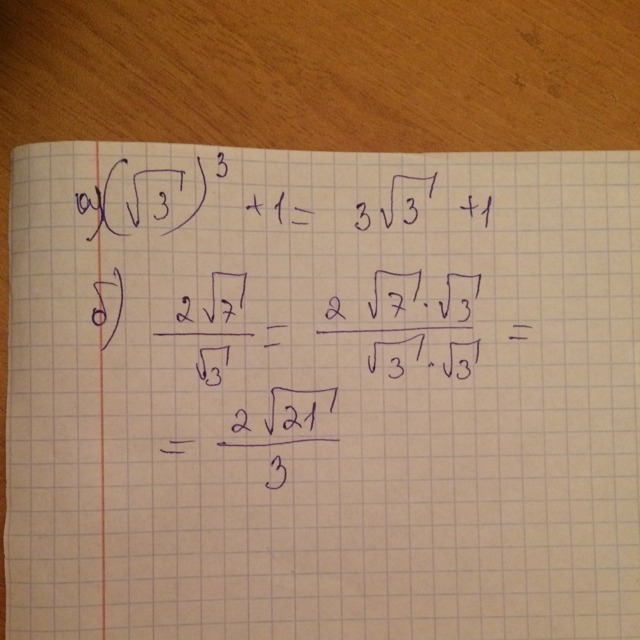 а) (√3)³ + 1 = 3√3 + 1
б) 2√7/√3 = 2 √7·√3/√3·√3 =
= 2√21/3